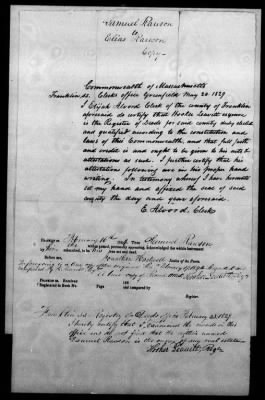 Samuel Rawson
to
Elias Rawson
Copy
Commonwealth of Massachusetts
Franklin SS. Clerks office Greenfield May 20 1829
I Elijah Alvord Clerk of the county of Franklin
aforesaid do certify that Hooker Leavitt esquire
is the Register of Deeds for said county duly elected
and qualified according to the constitution and
laws of this Commonwealth, and that full faith
and credit is and ought to be given to his acts &
attestations as such. I further certify that his
attestations following are in his proper hand
writing. In testimony whereof I have hereunto
set my hand and affixed the seal of said
county the day and year aforesaid.
E Alvord, Clerk
February 16th Then Samuel Rawson
Before me, Jonathan Hartwell Justice of the Peace.
Franklin ss. Received
Registered in Book No. Page and compared by
Register.
Franklin ss. Registry of Deeds office February 23. 1829
I hereby certify that I examined the records in this
office and do not find that the within named
Samuel Rawson is the owner of any real estate
Hooker Leavitt, Regr